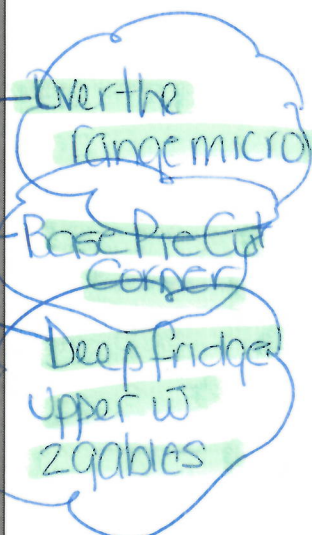 Over the
range micro
Base Pie Cut
Corner
Deep fridge
upper w
2 gables